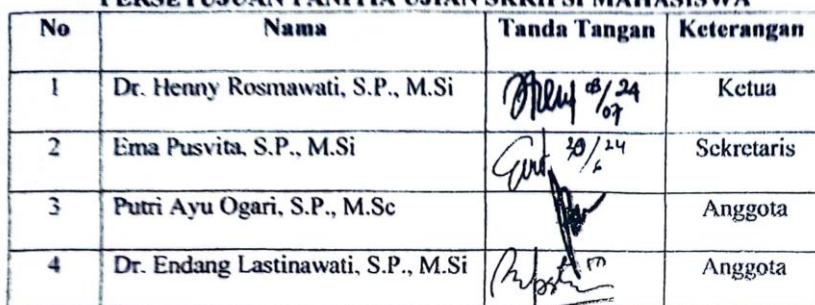 PERSETUJUAN PANITIA UJIAN SKRIPSI MAHASISWA
No Nama Tanda Tangan Keterangan
1 Dr. Henny Rosmawati, S.P., M.Si 08/24 07 Ketua
2 Ema Pusvita, S.P., M.Si Sekretaris
3 Putri Ayu Ogari, S.P., M.Sc Anggota
4 Dr. Endang Lastinawati, S.P., M.Si Anggota